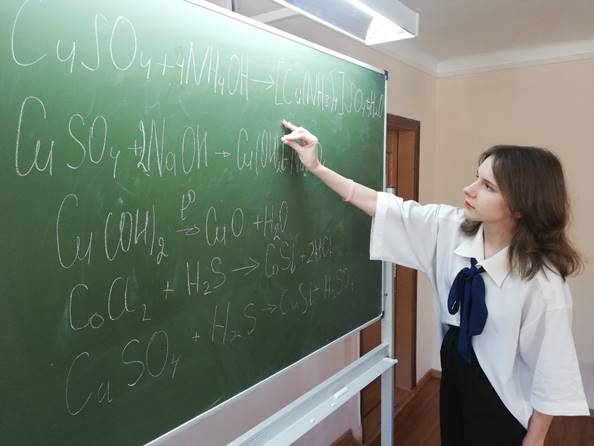 CuSO₄ + 4NH₄OH → [Cu(NH₃)₄]SO₄+H₂O
CuSO₄ + 2NaOH → Cu(OH)₂
Cu(OH)₂ t⁰→ CuO + H₂O
CoCl₂ + H₂S → CoS↓ + 2HCl
CuSO₄ + H₂S → CuS↓ + H₂SO₄